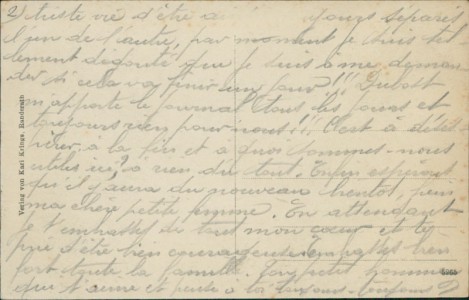 2) triste vie d'être a yours séparés
l'un de l'autre, par moment je suis tel
lement dégouté que je suis a me deman
der si cela va finir un jour!!! 
on apporte le journal tous les jours et
toujours rien pour nous!!! C'est à déses
pérer a la fin et a quoi sommes-nous
utiles ici? a rien du tout. Enfin espérons
qu'il y aura du nouveau bientot, 
ma chère petite femme. En attendant
je t'embrasse de tout mon cœur et te
prie d'être bien courageuse embrasse bien
fort toute la famille. Ton petit homme
qui t'aime et pense a toi toujours-toujours
Verlag von Karl Krings. Randerath